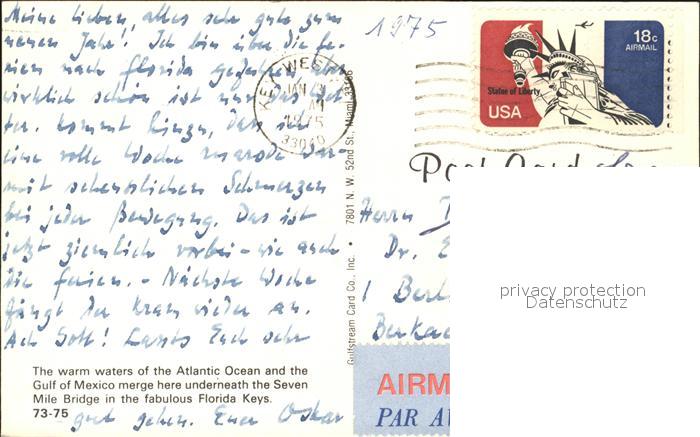 Meine Lieben, alles sehr gute zum
neuen Jahr! Ich bin über die Fe-
rien nach Florida
wirklich schön ist nur das Wet-
ter. Kommt hinzu, dass ich
eine volle Woche marode war
mit scheusslichen Schmerzen
bei jeder Bewegung. Das ist
jetzt ziemlich vorbei - wie auch
die Ferien. - Nächste Woche
fängt der Kram wieder an.
Ach Gott! Lasst's Euch sehr
The warm waters of the Atlantic Ocean and the
Gulf of Mexico merge here underneath the Seven
Mile Bridge in the fabulous Florida Keys.
73-75
gut gehen. Euer Oskar
Gulfstream Card Co., Inc. • 7801 N. W. 52nd St., Miami 33166
1975
KEY WEST
JAN
AM
1975
33040
18c
AIRMAIL
Statue of Liberty
USA
Post Card
Herrn
Dr. E
1 Berl
privacy protection
Datenschutz
AIRM
PAR A